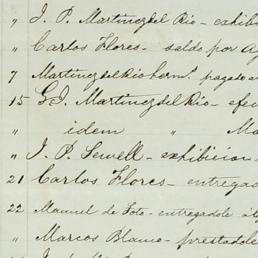 " J. P. Martinez del Rio - exhibi
" Carlos Flores - saldo por Ag
7 Martinez del Rio herms. pagado an
15 G. J. Martinez del Rio - efec
" idem " Ma
" J. P. Sewell - exhibicion
21 Carlos Flores - entregad
22 Manuel de Soto - entregadole á l
" Marcos Blanco - prestadole